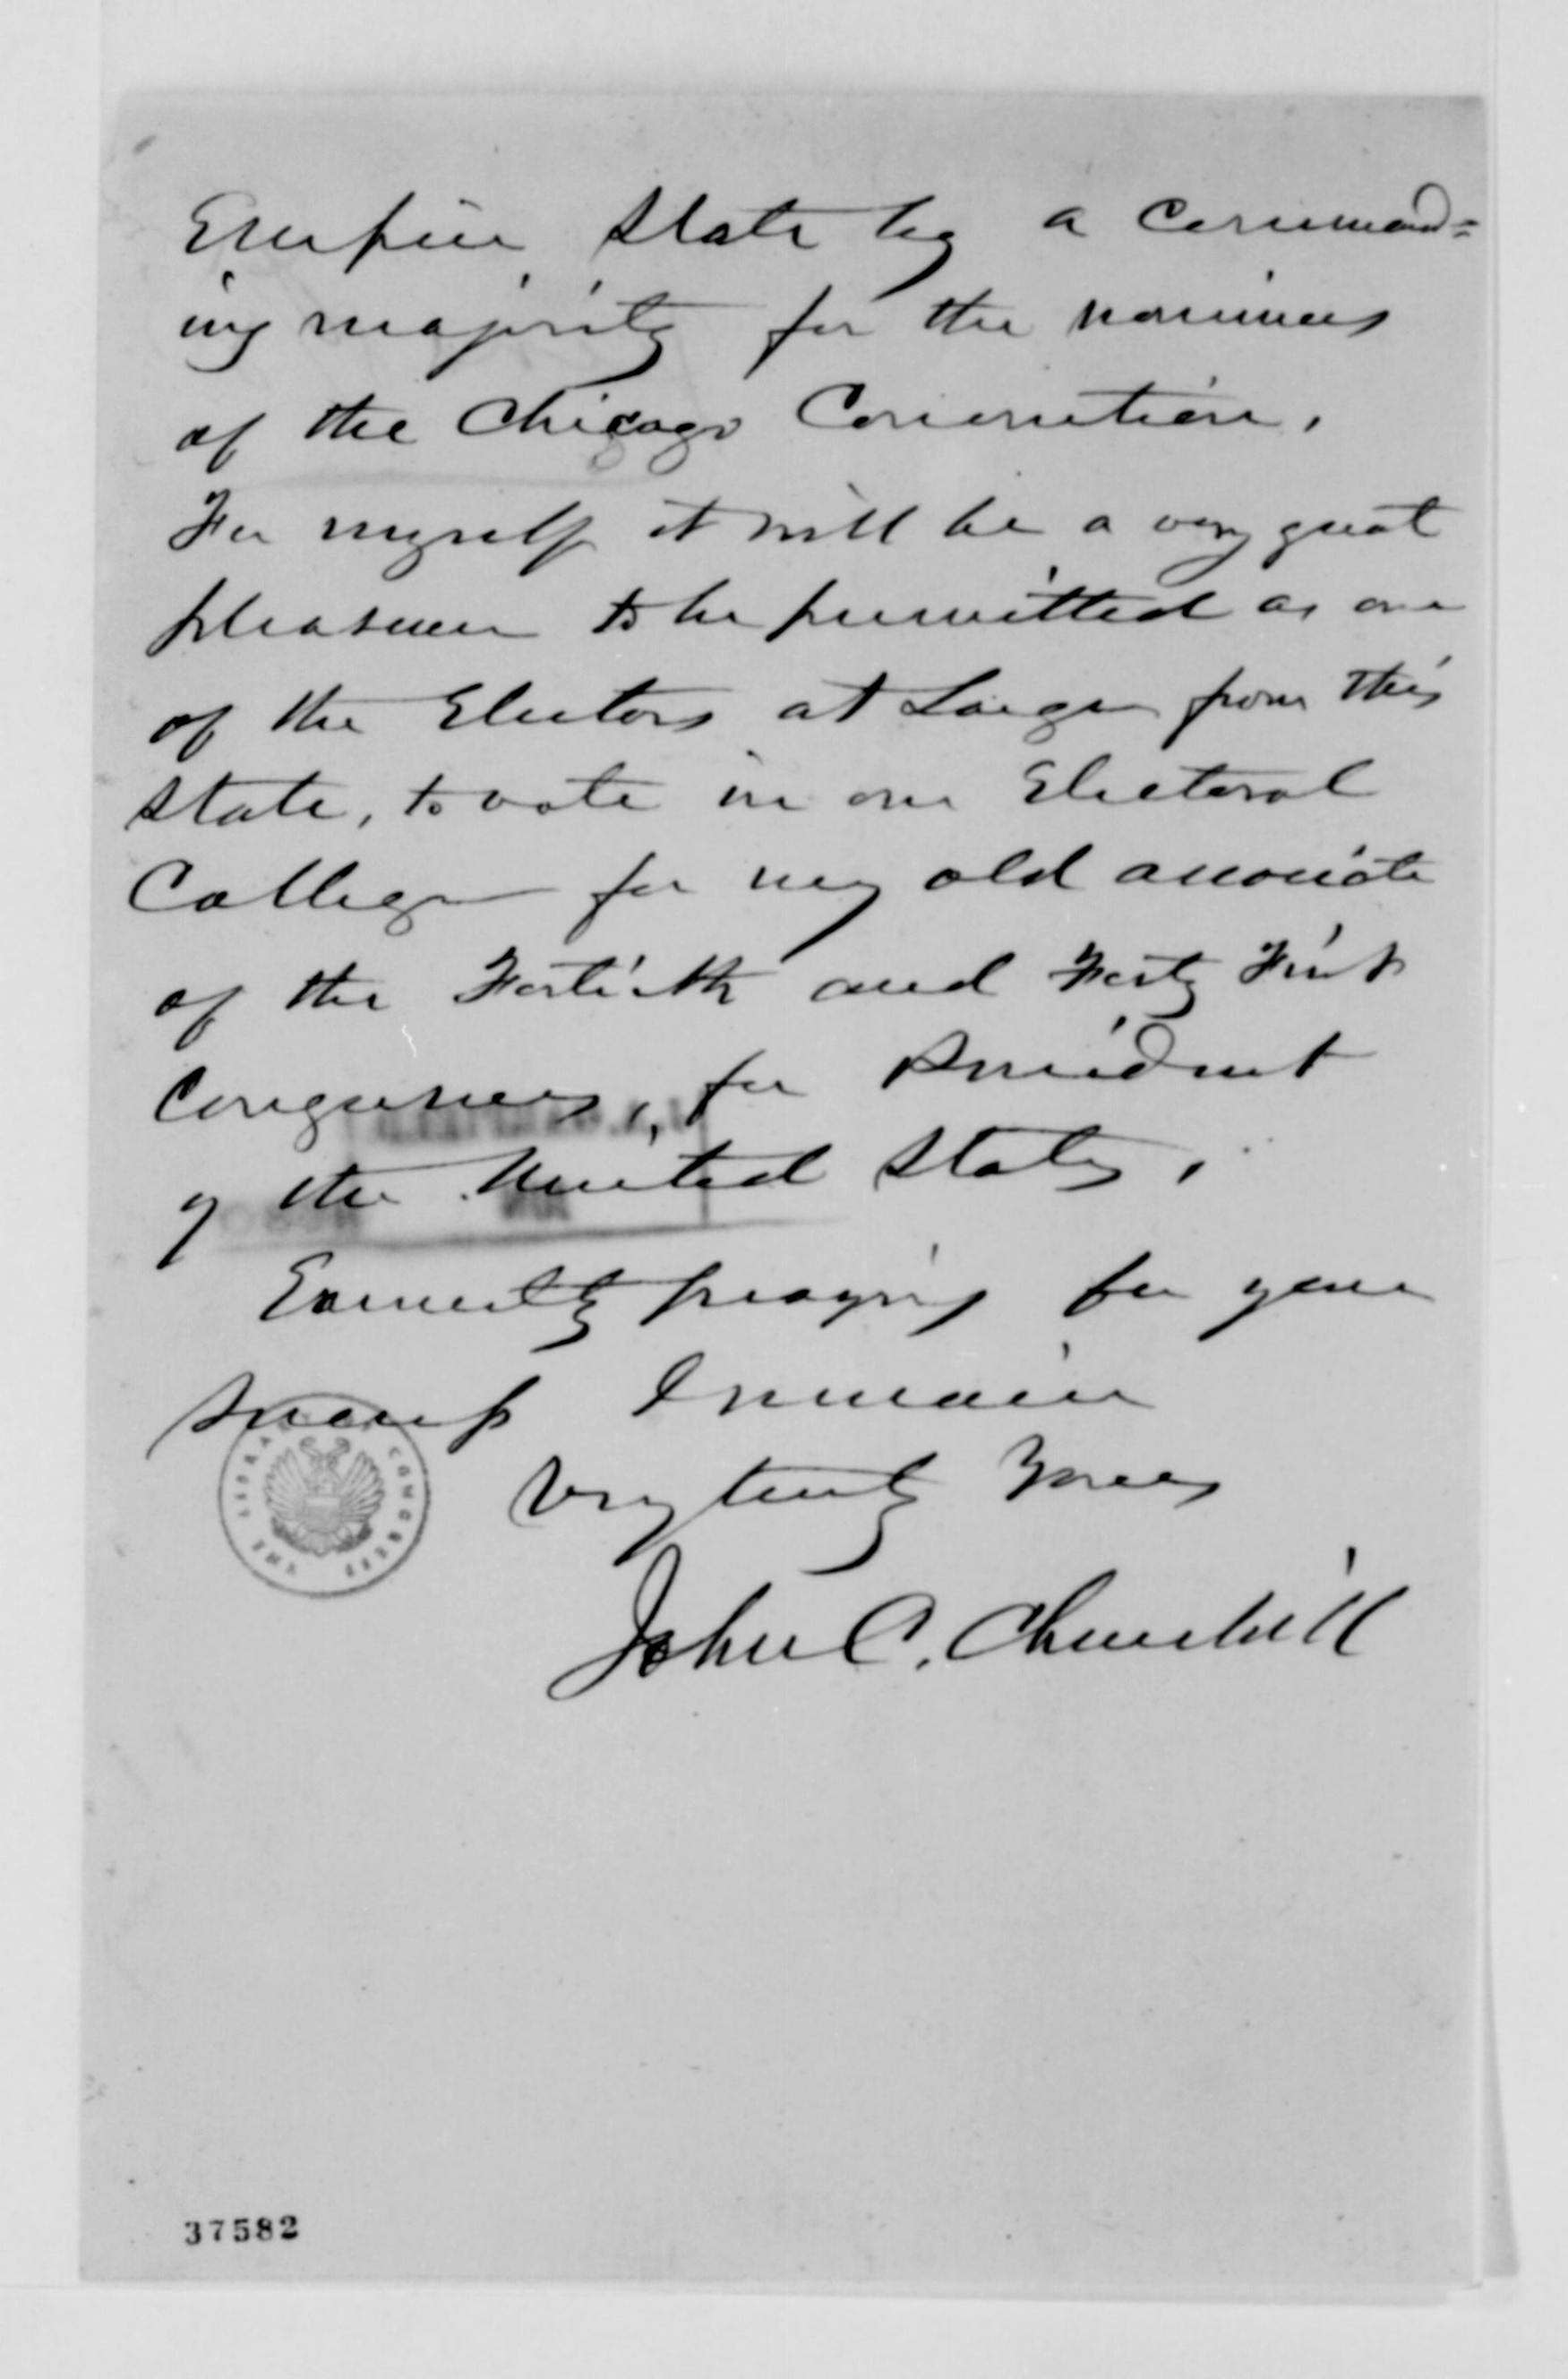 Empire State by a command=
ing majority for the nominees
of the Chicago Convention.
For myself it will be a very great
pleasure to be permitted as one
of the Electors at Large from this
State, to vote in our Electoral
College for my old associate
of the Fortieth and Forty First
Congresses, for President
of the United States.
Earnestly praying for your
success I remain
Very truly Yours
John C. Churchill
THE LIBRARY OF CONGRESS
37582